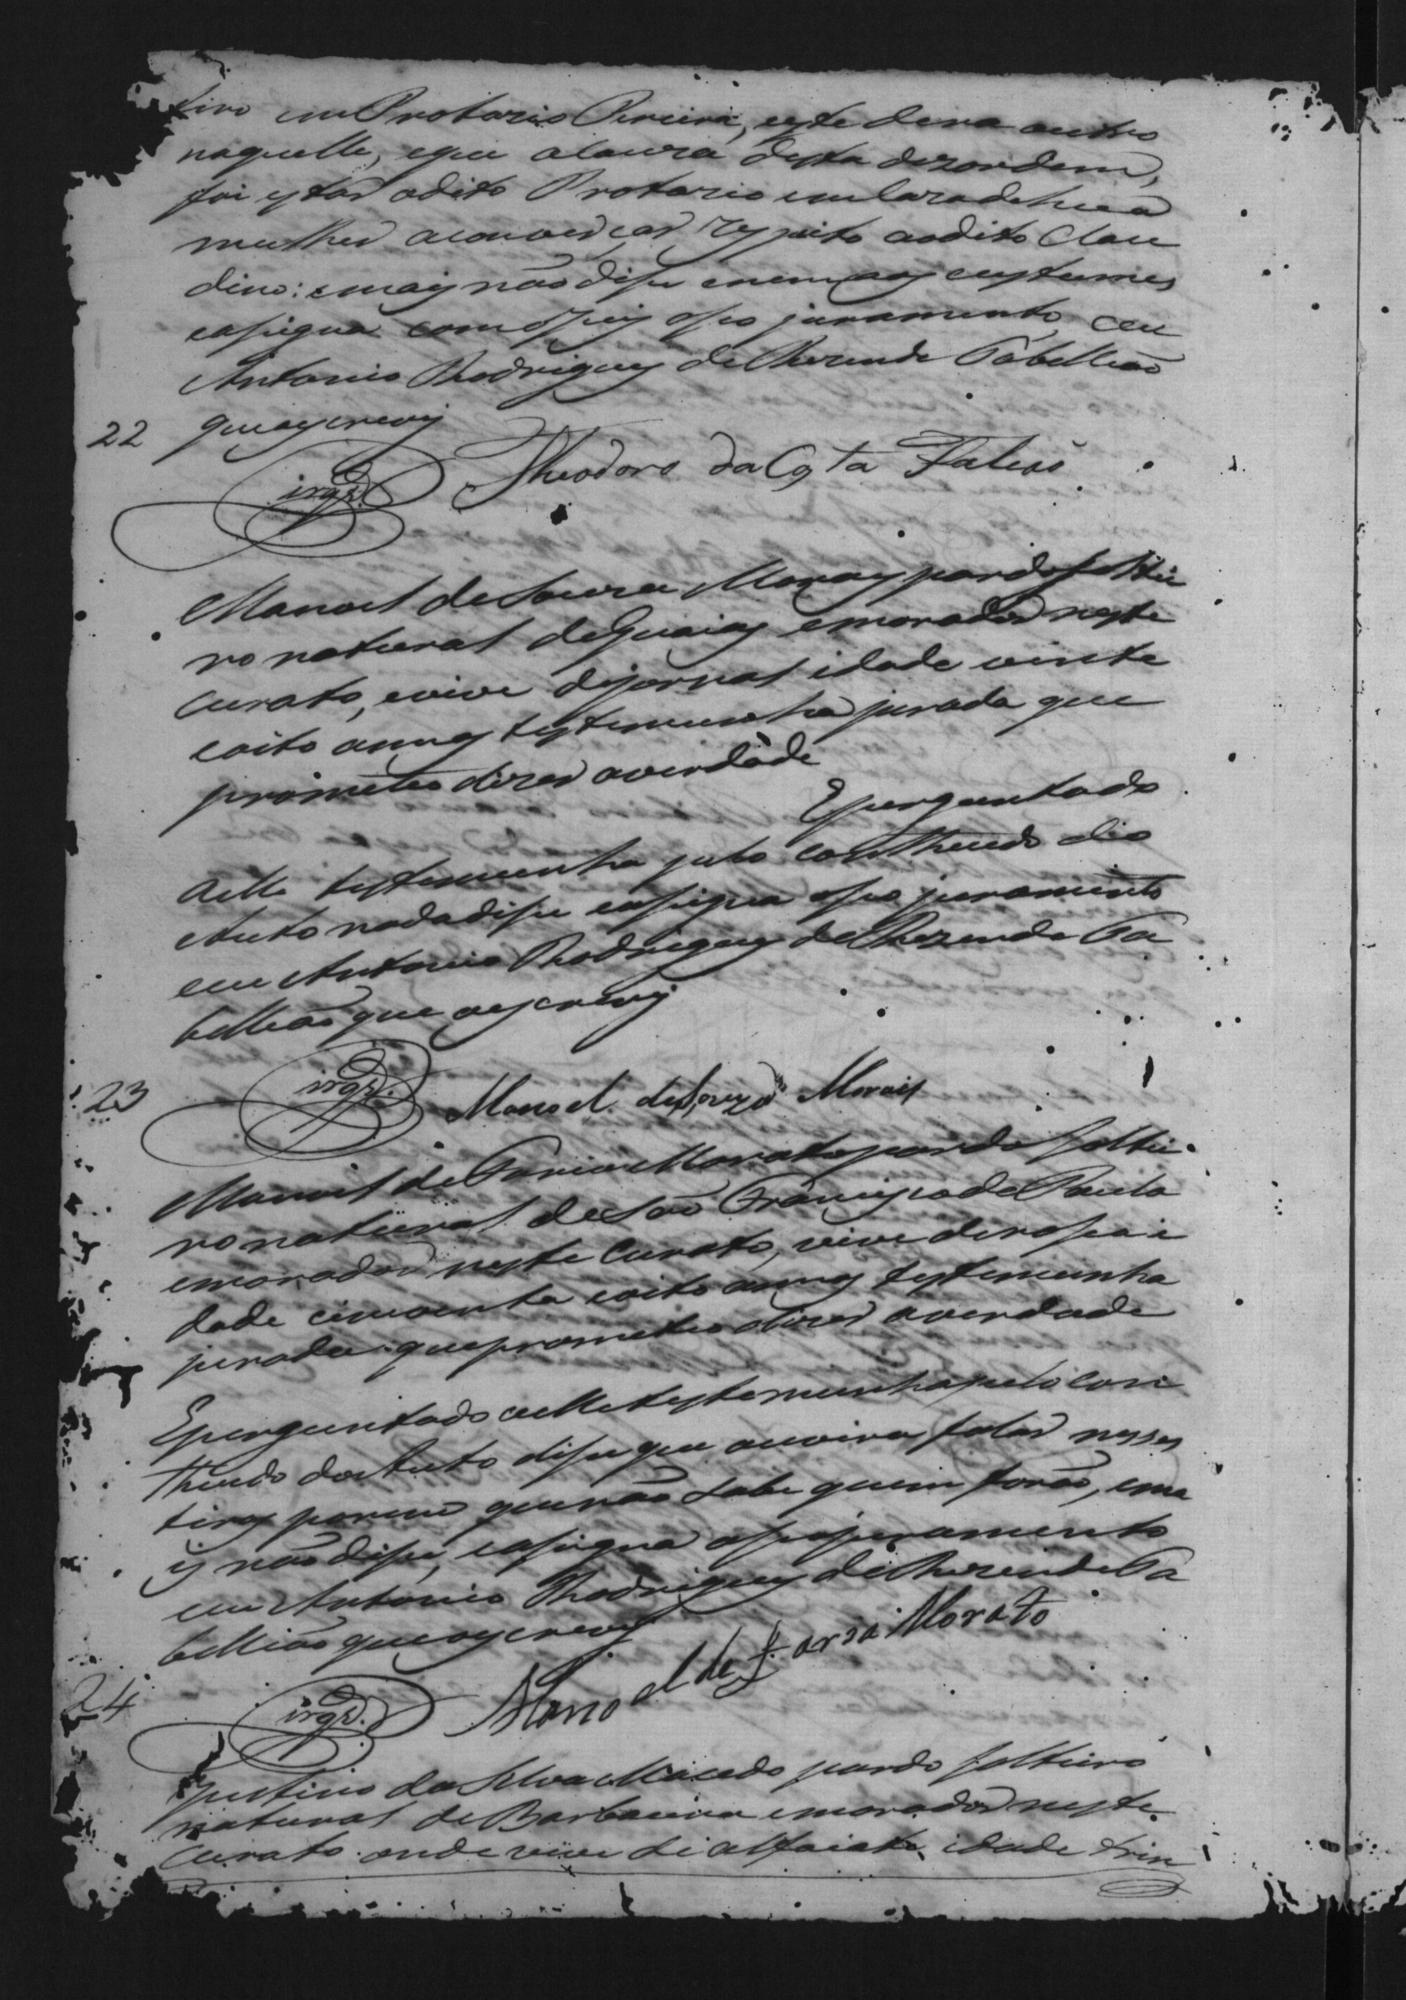 tiro em Protazio Pereira, este dera outro
naquelle, e que a cauza desta dezordem,
foi estar o dito Protazio em caza de hua
mulher a conversar respeito ao dito Clau
dino: e mais não dise e nem aos custumes
e asigna com o Juis o seo juramento, e eu
Antonio Rodrigues de Rezende Tabelliaõ
que escrevy
22
Theodoro da Costa Falcaõ
Manoel de Souza Morays pardo soltei
ro natural de Guaias e morador neste
Curato, e vive de jornal idade vinte
e oito annos testemunha jurada que
prometeo dizer a verdade
E perguntado
a elle testemunha pelo contheudo do
Auto nada dise e asigna o seo juramento
e eu Antonio Rodrigues de Rezende Ta
belliaõ que escrevy
23
Manoel de Souza Morais
Manoel de Faria Morato pardo soltei
ro natural de São Francisco de Paula
e morador neste Curato, vive de rosa i
dade cincoenta e oito annos testemunha
jurada que prometeo dizer a verdade
E perguntado a elle testemunha pelo con
theudo do Auto dise que ouvira falar nesses
tiros porem que não sabe quem foraõ, e ma
is não dise, e asigna o seo juramento
e eu Antonio Rodrigues de Rezende Ta
belliaõ que escrevy
24
Manoel de Faria Morato
Justino da Silva Macedo pardo solteiro
natural de Barbacena e morador neste
Curato onde vive de alfaiate idade trin